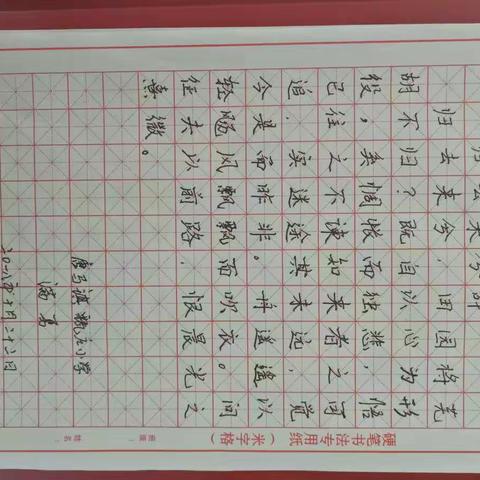 归去来兮，田园将芜
胡不归？既自以心为形
役，奚惆怅而独悲，悟
已往之不谏如来者之可
追，实迷途其未远，觉
今是而昨非。舟遥遥以
轻飏风飘飘而吹衣。问
征夫以前路，恨晨光之
熹微。
小学
二〇一八年十月二十二日
硬笔书法专用纸（米字格）
班级：
姓名：